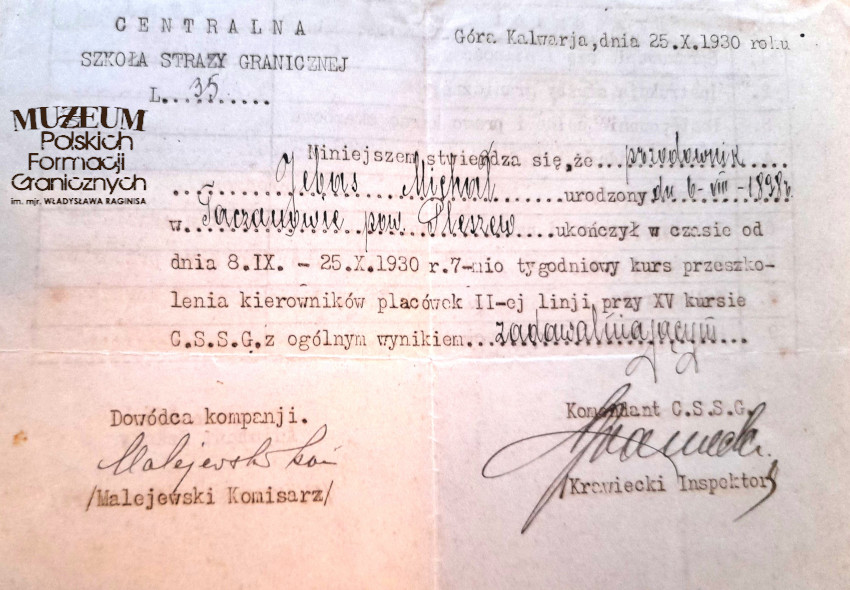 CENTRALNA
SZKOŁA STRAŻY GRANICZNEJ
L....35......
Góra Kalwarja, dnia 25.X.1930 roku
MUZEUM
Polskich
Formacji
Granicznych
im. mjr. WŁADYSŁAWA RAGINISA
Miniejszem stwierdza się, że ..przodownik....
Jebas Michał urodzony dn. 6-VIII-1898r.
w Taczanowie pow. Pleszew....ukończył w czasie od
dnia 8.IX. - 25.X.1930 r.7-nio tygodniowy kurs przeszko-
lenia kierowników placówek II-ej linji przy XV kursie
C.S.S.G.z ogólnym wynikiem...zadawalniającym
Dowódca kompanji.
Malejewski kom
/Malejewski Komisarz/
Komendant C.S.S.G.
/Krawiecki Inspektor/